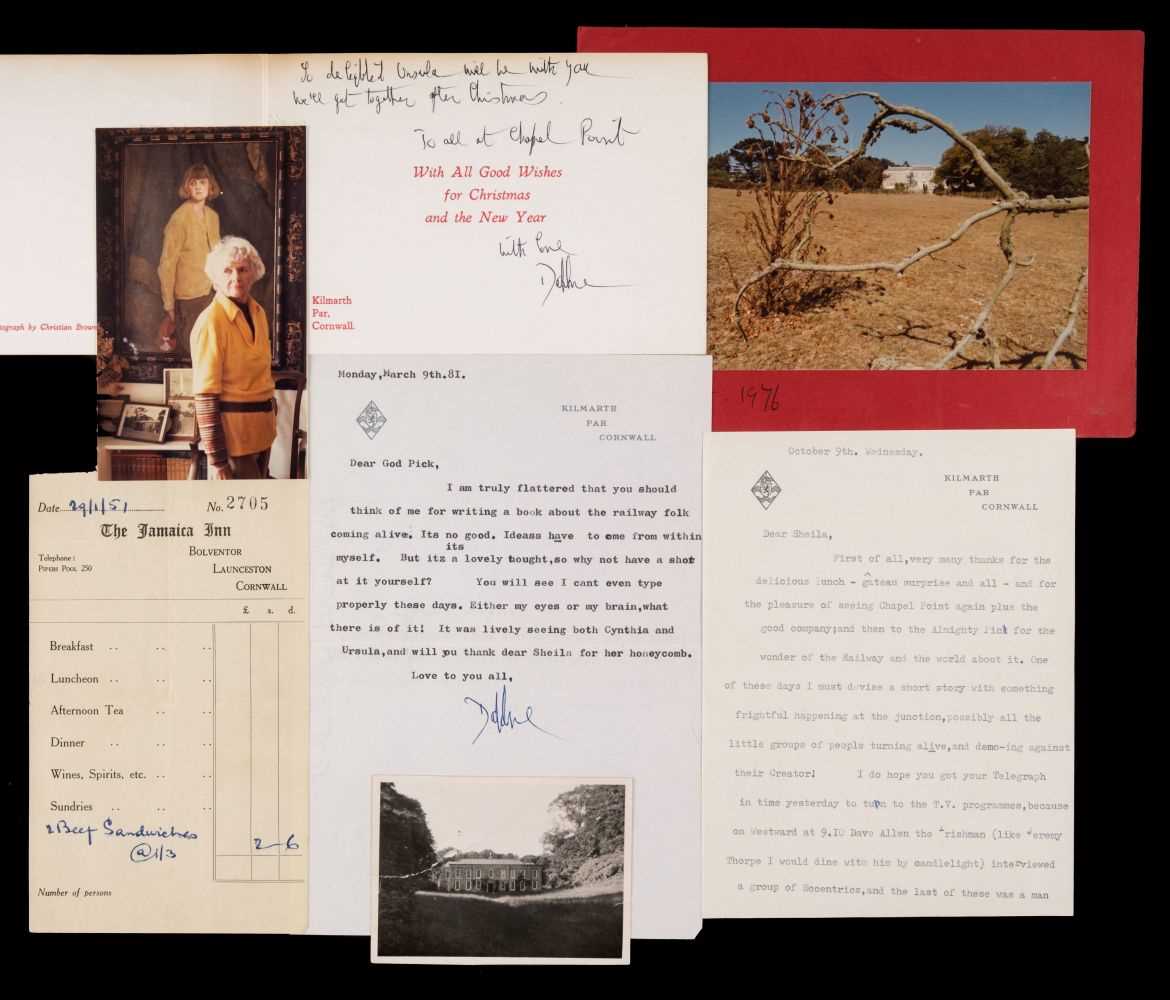 So delighted Ursula will be with you
We'll get together after Christmas.
To all at Chapel Point
With All Good Wishes
for Christmas
and the New Year
with love
Daphne
Kilmarth
Par,
Cornwall.
tograph by Christian Brown
1976
Monday,March 9th.81.
KILMARTH
PAR
CORNWALL
Dear God Pick,
I am truly flattered that you should
think of me for writing a book about the railway folk
coming alive. Its no good. Ideass have to ome from within
its
myself. But itz a lovely tought,so why not have a shot
at it yourself? You will see I cant even type
properly these days. Either my eyes or my brain,what
there is of it! It was lively seeing both Cynthia and
Ursula,and will you thank dear Sheila for her honeycomb.
Love to you all,
Daphne
Date 29/1/51 No. 2705
The Jamaica Inn
Telephone:
PIPERS POOL 250
BOLVENTOR
LAUNCESTON
CORNWALL
£ s. d.
Breakfast .. .. ..
Luncheon .. .. ..
Afternoon Tea .. ..
Dinner .. .. ..
Wines, Spirits, etc. .. ..
Sundries .. .. ..
2 Beef Sandwiches
@ 1/3 2-6
Number of persons
October 9th. Wednesday.
KILMARTH
PAR
CORNWALL
Dear Sheila,
First of all,very many thanks for the
delicious lunch - gâteau surprise and all - and for
the pleasure of seeing Chapel Point again plus the
good company;and then to the Almighty Pick for the
wonder of the Railway and the world about it. One
of these days I must devise a short story with something
frightful happening at the junction,possibly all the
little groups of people turning alive,and demo-ing against
their Creator! I do hope you got your Telegraph
in time yesterday to turn to the T.V. programmes,because
on Westward at 9.10 Dave Allen the Irishman (like Jeremy
Thorpe I would dine with him by candlelight) interviewed
a group of Eccentrics,and the last of these was a man